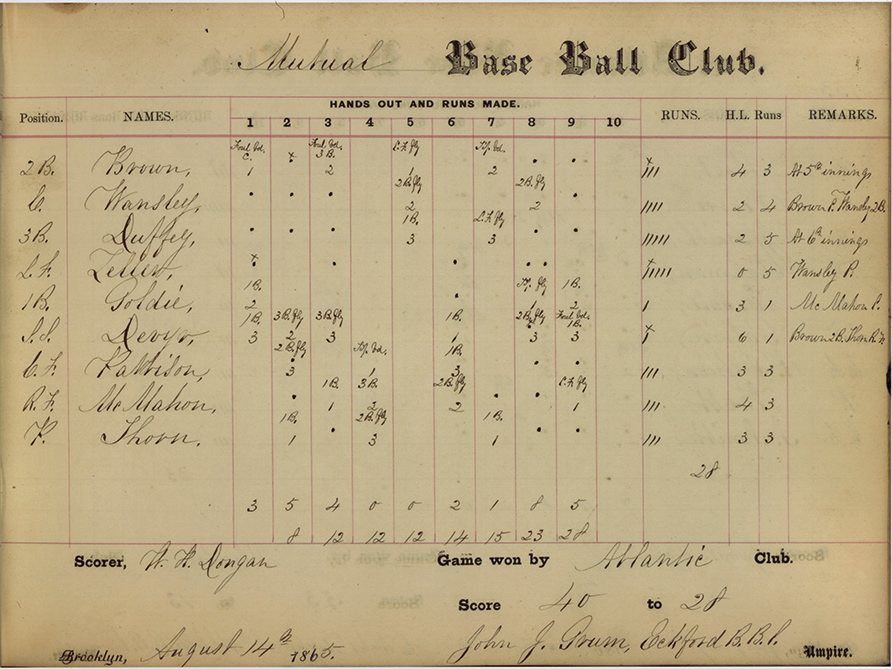 Mutual Base Ball Club.
HANDS OUT AND RUNS MADE.
Position. NAMES. 1 2 3 4 5 6 7 8 9 10 RUNS. H.L. Runs REMARKS.
Foul Bd. Foul Bd. C.F. fly
C. 3 B.
2 B. Brown, 1 2 1 2 4 3 At 5th innings
2B. fly 2B. fly
C. Wansley, 2 2 2 4 Brown P. Wansley 2B.
1B. L.F. fly
3 B. Duffey, 3 3 2 5 At 6th innings
L. F. Zeller, 0 5 Wansley P.
1B. fly 1B.
1 B. Goldie, 2 1 2 3 1 Mc Mahon P.
1B. 3B. fly 3B. fly 1B. 2B. fly Foul Bd.
1B.
S. S. Devyr, 3 2 3 1 3 3 6 1 Brown 2B. Thorn R. F.
2B. fly 1B.
C. F. Pattison, 3 1 3 3 3
1B. 3B. 2B. fly C.F. fly
R. F. Mc Mahon, 1 2 2 1 4 3
1B. 2B. fly 1B.
P. Thorn, 1 3 1 3 3
28
3 5 4 0 0 2 1 8 5
8 12 12 12 14 15 23 28
Scorer, W. H. Dongan Game won by Atlantic Club.
Score 40 to 28
Brooklyn, August 14th 1865. John J. Grum, Eckford B. B. C. Umpire.